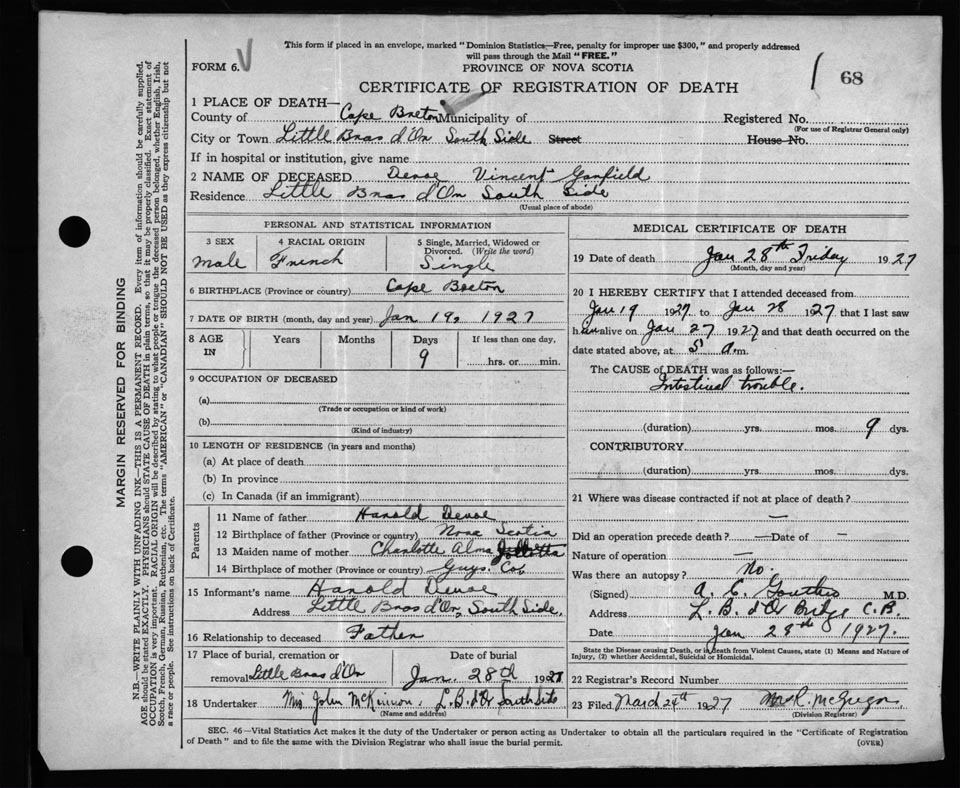 This form if placed in an envelope, marked "Dominion Statistics—Free, penalty for improper use $300," and properly addressed
will pass through the Mail "FREE."
FORM 6.
PROVINCE OF NOVA SCOTIA
68
CERTIFICATE OF REGISTRATION OF DEATH
1 PLACE OF DEATH—
County of Cape Breton Municipality of Registered No.
(For use of Registrar General only)
City or Town Little Bras d'Or South Side Street House No.
If in hospital or institution, give name
2 NAME OF DECEASED Devoe Vincent Garfield
Residence Little Bras d'Or South Side
(Usual place of abode)
PERSONAL AND STATISTICAL INFORMATION
3 SEX 4 RACIAL ORIGIN 5 Single, Married, Widowed or
Divorced. (Write the word)
male French Single
6 BIRTHPLACE (Province or country) Cape Breton
7 DATE OF BIRTH (month, day and year) Jan 19, 1927
8 AGE IN Years Months Days If less than one day,
9 hrs. or min.
9 OCCUPATION OF DECEASED
(a)
(Trade or occupation or kind of work)
(b)
(Kind of industry)
10 LENGTH OF RESIDENCE (in years and months)
(a) At place of death
(b) In province
(c) In Canada (if an immigrant)
Parents
11 Name of father Harold Devoe
12 Birthplace of father (Province or country) Nova Scotia
13 Maiden name of mother Charlotte Alma
14 Birthplace of mother (Province or country) Guys. Co.
15 Informant's name Harold Devoe
Address Little Bras d'Or, South Side.
16 Relationship to deceased Father
17 Place of burial, cremation or Date of burial
removal Little Bras d'Or Jan. 28th 1927
18 Undertaker Mrs John McKinnon, L.B. d'Or South Side
(Name and address)
MEDICAL CERTIFICATE OF DEATH
19 Date of death Jan 28th Friday 1927
(Month, day and year)
20 I HEREBY CERTIFY that I attended deceased from
Jan 19 1927 to Jan 28 1927 that I last saw
him alive on Jan 27 1927 and that death occurred on the
date stated above, at 5 a.m.
The CAUSE of DEATH was as follows:—
Intestinal trouble.
(duration) yrs. mos. 9 dys.
CONTRIBUTORY.
(duration) yrs. mos. dys.
21 Where was disease contracted if not at place of death?
—
Did an operation precede death? — Date of —
Nature of operation —
Was there an autopsy? No.
(Signed) M.D.
Address L. B. d'Or Bridge C.B.
Date Jan 28th 1927.
State the Disease causing Death, or in Death from Violent Causes, state (1) Means and Nature of
Injury, (2) whether Accidental, Suicidal or Homicidal.
22 Registrar's Record Number
23 Filed March 24th 1927 McGregor
(Division Registrar)
SEC. 46—Vital Statistics Act makes it the duty of the Undertaker or person acting as Undertaker to obtain all the particulars required in the "Certificate of Registration
of Death" and to file the same with the Division Registrar who shall issue the burial permit.
(OVER)
MARGIN RESERVED FOR BINDING
N.B.—WRITE PLAINLY WITH UNFADING INK—THIS IS A PERMANENT RECORD. Every item of information should be carefully supplied.
AGE should be stated EXACTLY. PHYSICIANS should STATE CAUSE OF DEATH in plain terms, so that it may be properly classified. Exact statement of
OCCUPATION is very important. RACIAL ORIGIN will be described by stating to what people or tongue the deceased person belonged, whether English, Irish,
Scotch, French, German, Russian, Ruthenian, etc. The terms "AMERICAN" or "CANADIAN" SHOULD NOT BE USED as they express citizenship but not
a race or people. See instructions on back of Certificate.